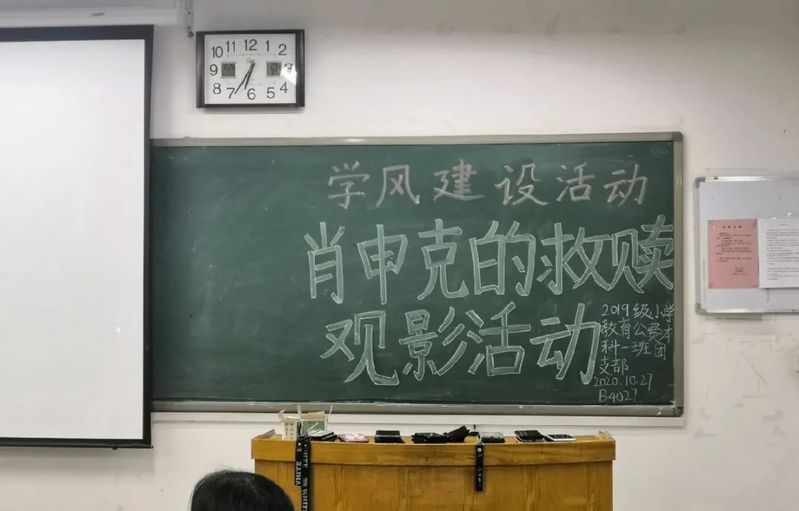 学风建设活动
肖申克的救赎
观影活动
2019级小学
教育公费本
科一班团
支部
2020.10.27
B4027
10 11 12 1 2
9 3
8 7 6 5 4